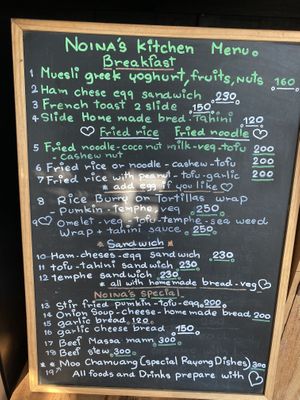 NOINA'S KITCHEN MENU.
Breakfast
1 Muesli greek yoghurt, fruits, nuts 160
2 Ham chese egg sandwich 230
3 French toast 2 slide 150
4 Slide Home made bred. Tahini 120
Fried rice Fried noodle
5 Fried noodle-coconut milk-veg-tofu 200
- cashew nut
6 Fried rice or noodle-cashew-tofu 200
7 Fried rice with peanut-tofu-garlic 200
* add egg if you like
8 Rice Burro or Tortillas wrap
Pumkin-temphe veg 250
9 Omelet-veg-tofu-temphe-sea weed
Wrap + tahini sauce 250
* Sandwich *
10 Ham-cheses-egg sandwich 230
11 tofu-tahini sandwich 230
12 temphe sandwich 230
* all with homemade bread-veg
NOINA'S Special
13 Stir fried pumkin-tofu-egg 200
14 Onion Soup-cheese-homemade bread 200
15 garlic bread 120
16 garlic cheese bread 150
17 Beef Massa mann 300
18 Beef stew 300
* * 19 Moo Chamuang (special Payong Dishes) 300
All foods and Drinks prepare with